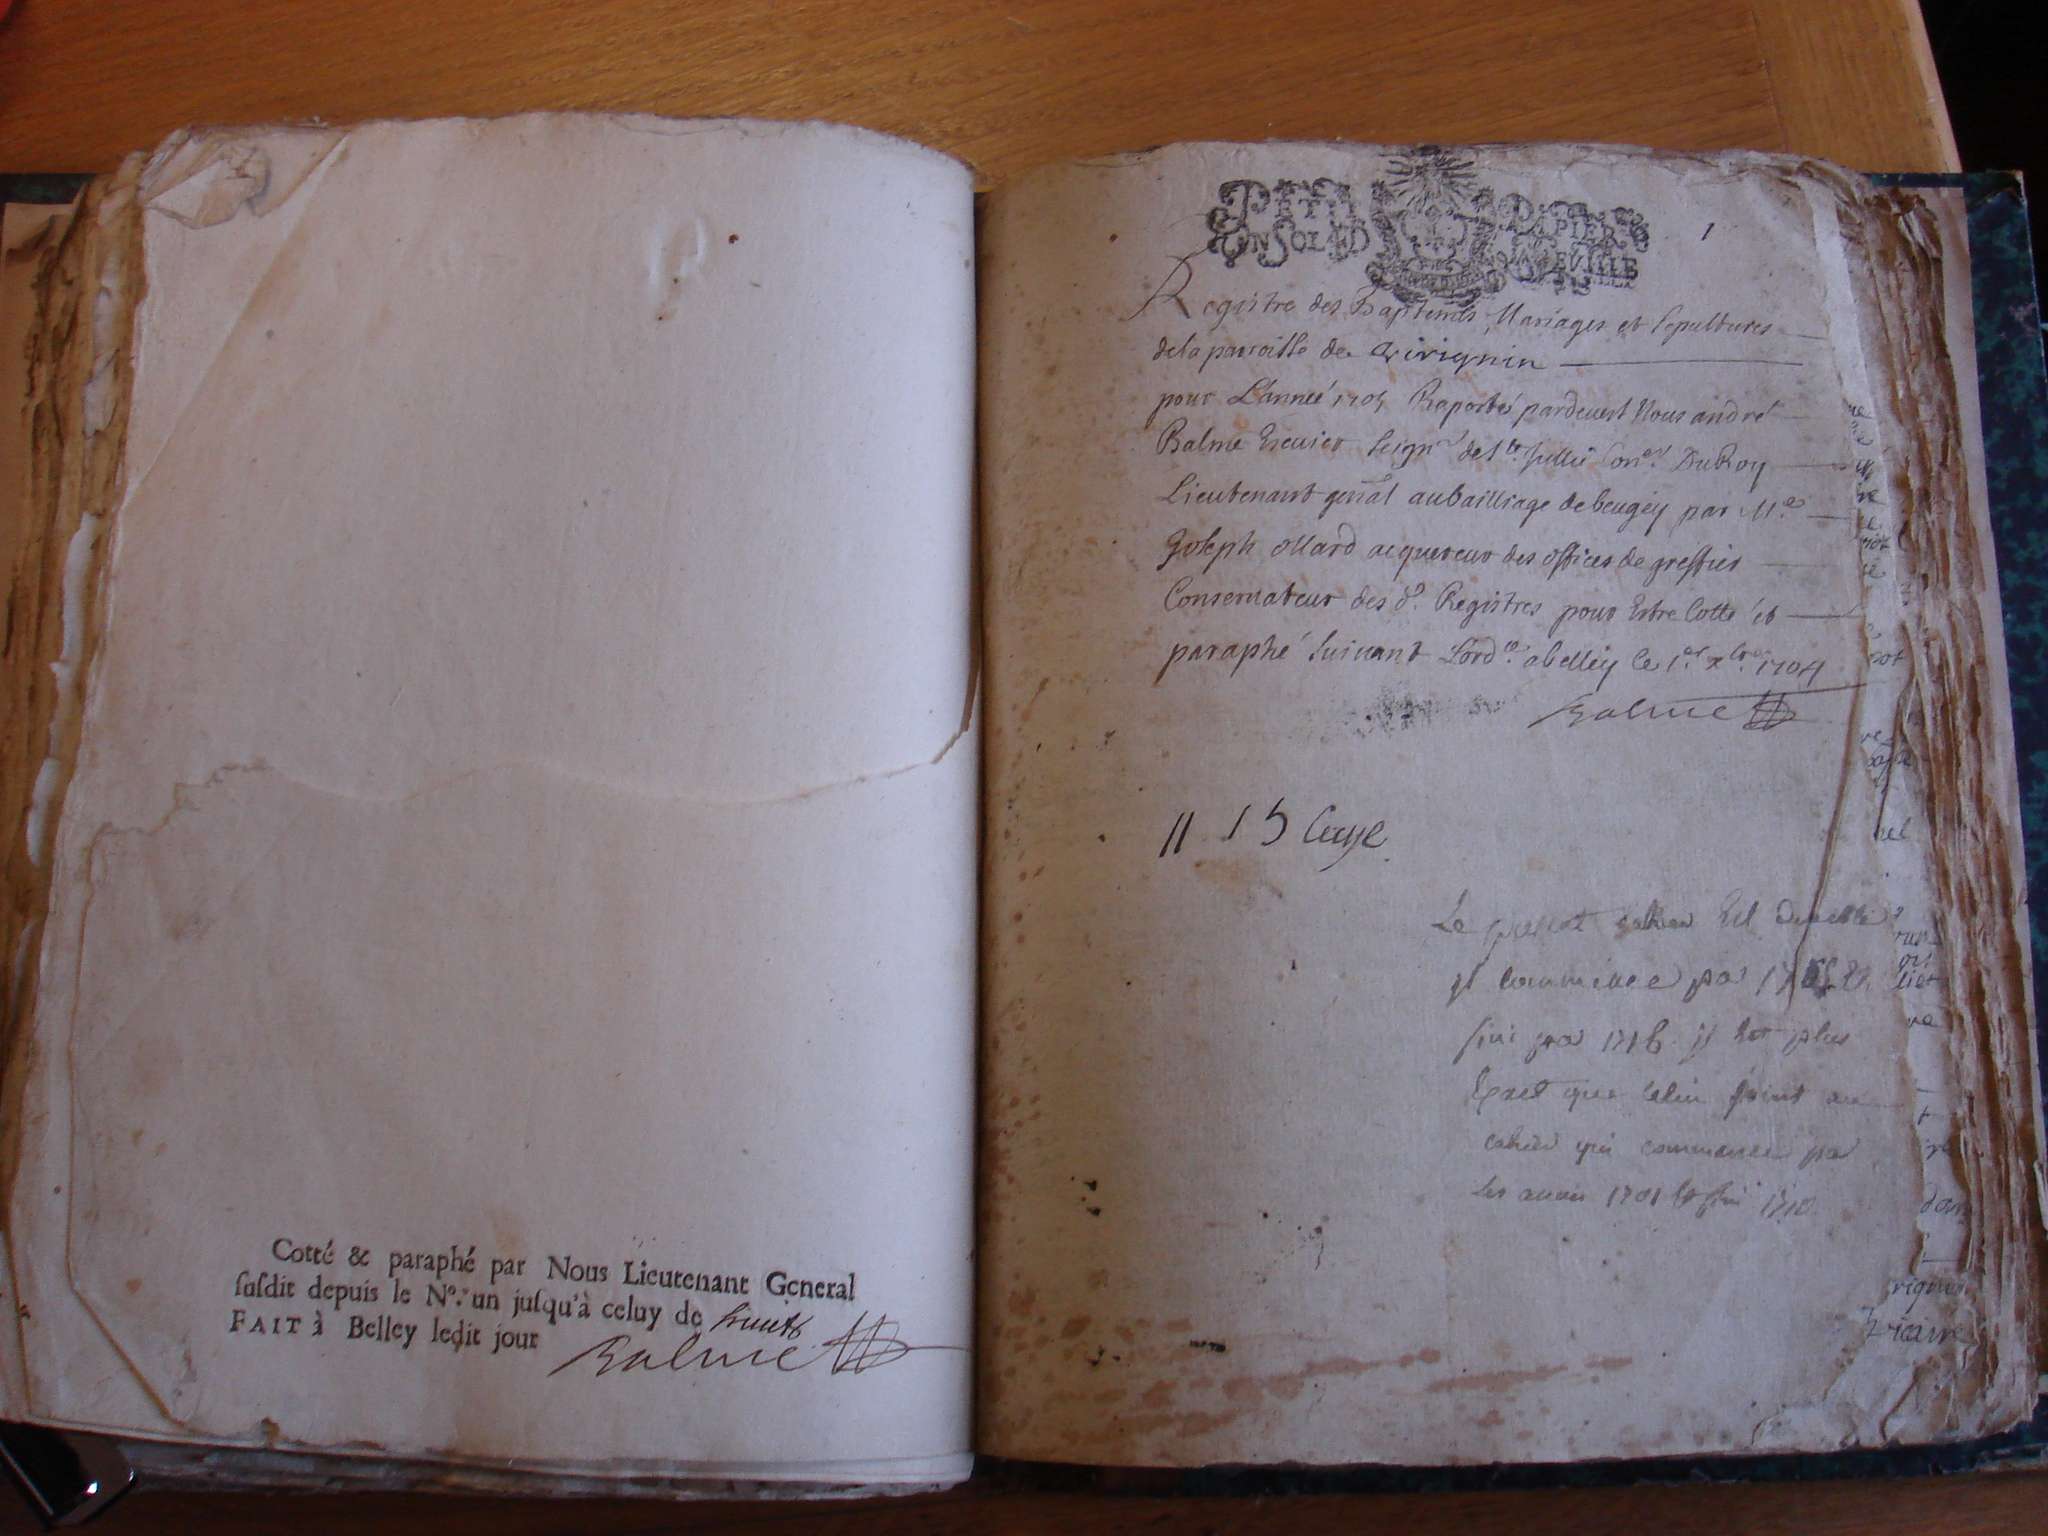 Cotté & paraphé par Nous Lieutenant General
ſuſdit depuis le N°. un juſqu'à celuy de huict
FAIT à Belley ledit jour
Balme
PETIT PAPIER
UN SOL LED VILLE
1
Registre des Baptemes Mariages et Sepultures
de la parroisse de Virignin
pour L'année 1705 Raporté pardevert Nous andré
Balme Escuier Seignr de Ste Jullie Coner. Du Roy
Lieutenant genal au bailliage de beugey par Me
Joseph ollard acquereur des offices de greffier
Conservateur des ds. Registres pour Estre Cotté et
paraphé Suivant Lordce. a belley le 1er xbre 1704
Balme
11 15
Le present cahier Est
il commence par
fini par 1716 il Est plus
Exact que celui joint au
cahier qui commance par
les année 1701 et fini 1710